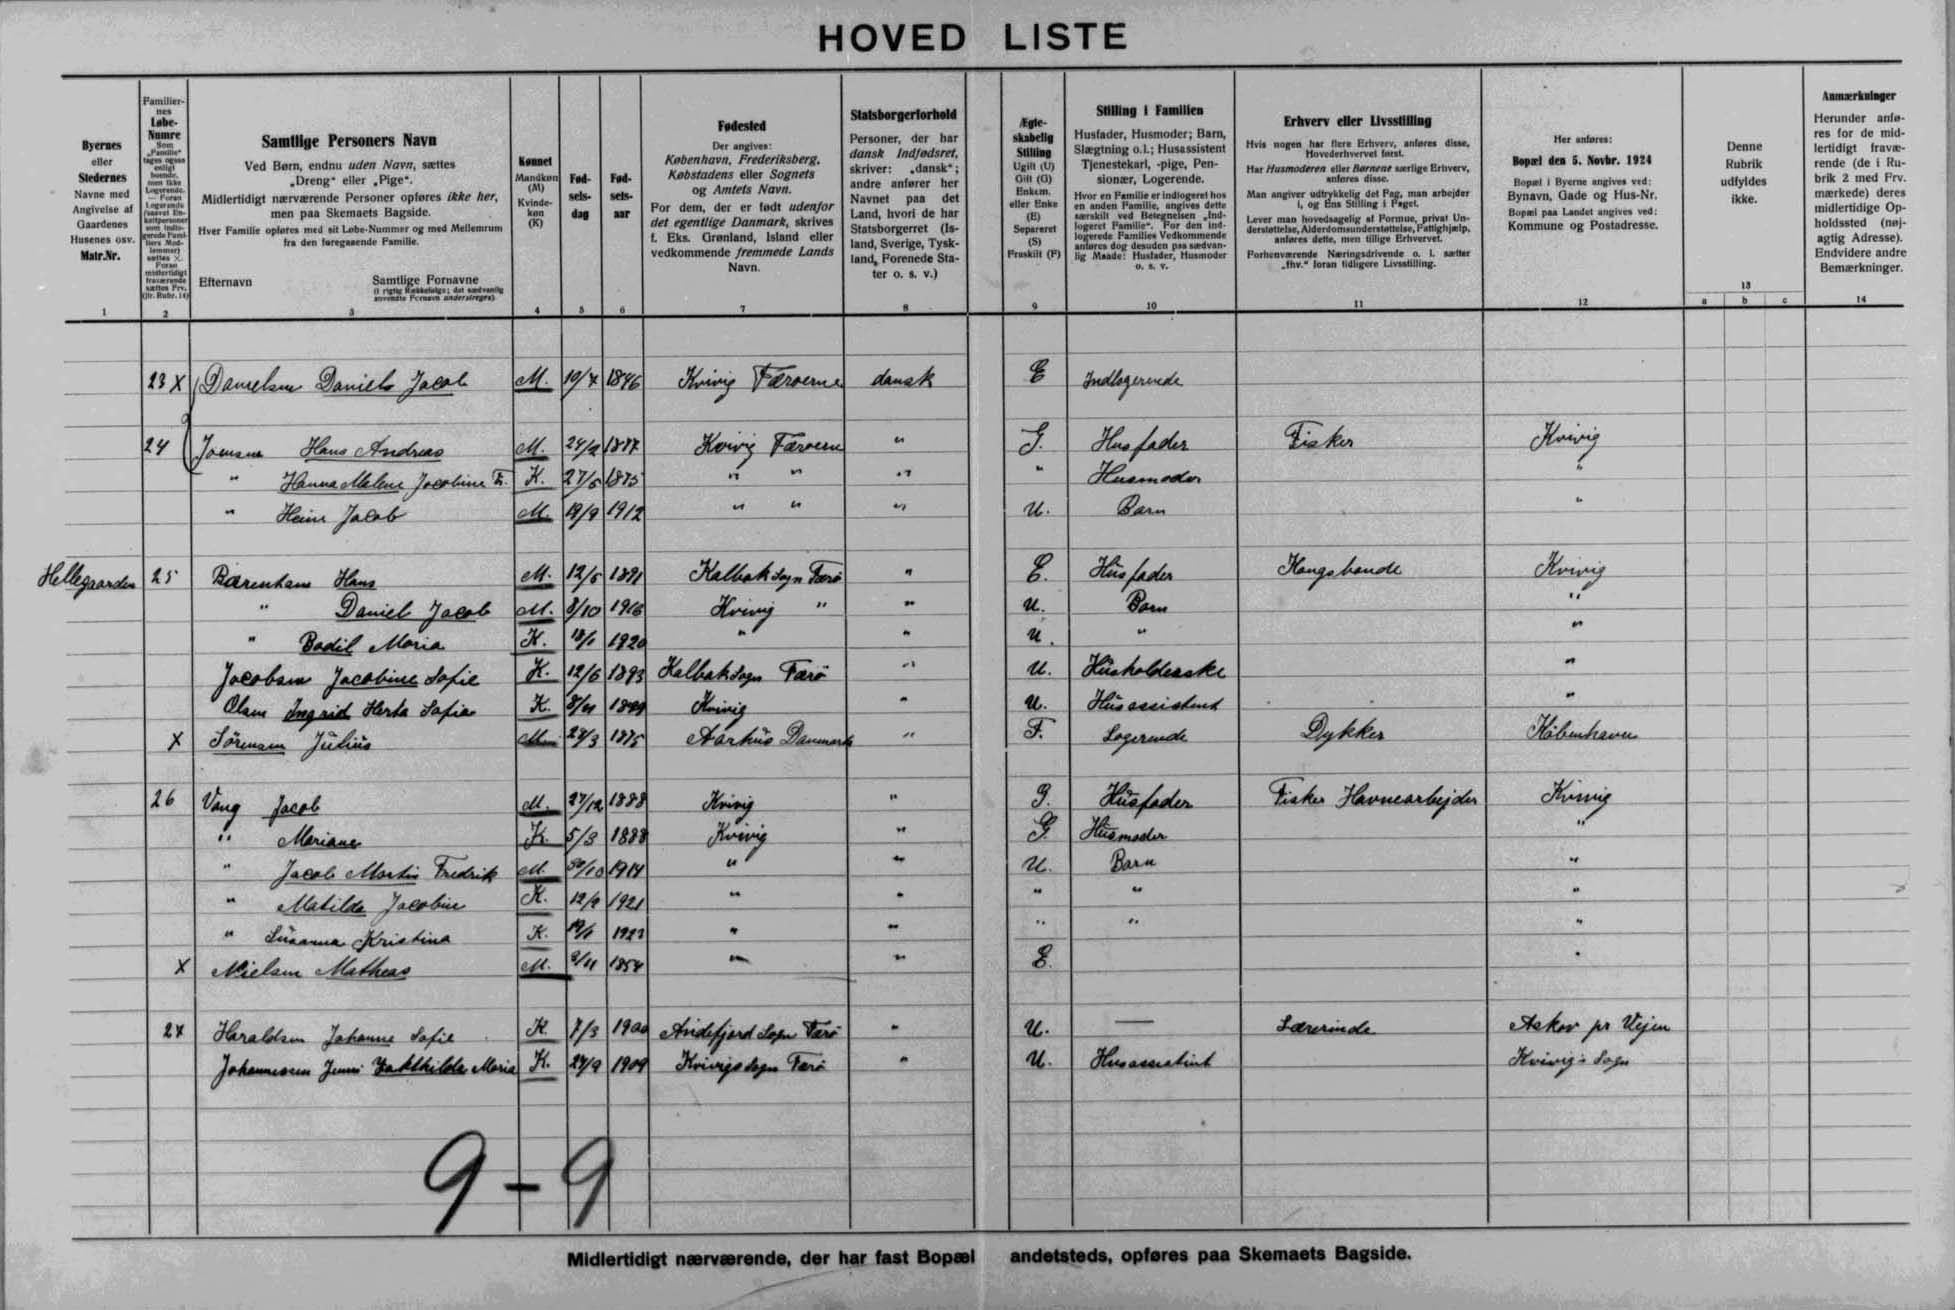 HOVED LISTE
Byernes eller Stedernes Navne med Angivelse af Gaardenes Husenes osv. Matr.Nr.
Familiernes Løbe-Numre
Samtlige Personers Navn
Ved Børn, endnu uden Navn, sættes „Dreng" eller „Pige".
Midlertidigt nærværende Personer opføres ikke her, men paa Skemaets Bagside.
Hver Familie opføres med sit Løbe-Nummer og med Mellemrum fra den foregaaende Familie.
Efternavn Samtlige Fornavne
(i rigtig Rækkefølge; det sædvanlig anvendte Fornavn understreges)
Kønnet Mandkøn (M) Kvindekøn (K)
Fødselsdag
Fødselsaar
Fødested
Der angives:
København, Frederiksberg, Købstadens eller Sognets og Amtets Navn.
For dem, der er født udenfor det egentlige Danmark, skrives f. Eks. Grønland, Island eller vedkommende fremmede Lands Navn.
Statsborgerforhold
Personer, der har dansk Indfødsret, skriver: „dansk"; andre anfører her Navnet paa det Land, hvori de har Statsborgerret (Island, Sverige, Tyskland, Forenede Stater o. s. v.)
Ægteskabelig Stilling
Ugift (U)
Gift (G)
Enkem. eller Enke (E)
Separeret (S)
Fraskilt (F)
Stilling i Familien
Husfader, Husmoder; Barn, Slægtning o.l.; Husassistent Tjenestekarl, -pige, Pensionær, Logerende.
Hvor en Familie er indlogeret hos en anden Familie, angives dette særskilt ved Betegnelsen „Indlogeret Familie". For den indlogerede Families Vedkommende anføres dog desuden paa sædvanlig Maade: Husfader, Husmoder o. s. v.
Erhverv eller Livsstilling
Hvis nogen har flere Erhverv, anføres disse, Hovederhvervet først.
Har Husmoderen eller Børnene særlige Erhverv, anføres disse.
Man angiver udtrykkelig det Fag, man arbejder i, og Ens Stilling i Faget.
Lever man hovedsagelig af Formue, privat Understøttelse, Alderdomsunderstøttelse, Fattighjælp, anføres dette, men tillige Erhvervet.
Forhenværende Næringsdrivende o. l. sætter „fhv." foran tidligere Livsstilling.
Her anføres:
Bopæl den 5. Novbr. 1924
Bopæl i Byerne angives ved:
Bynavn, Gade og Hus-Nr.
Bopæl paa Landet angives ved:
Kommune og Postadresse.
Denne Rubrik udfyldes ikke.
Anmærkninger
Herunder anføres for de midlertidigt fraværende (de i Rubrik 2 med Frv. mærkede) deres midlertidige Opholdssted (nøjagtig Adresse). Endvidere andre Bemærkninger.
1 2 3 4 5 6 7 8 9 10 11 12 13 a b c 14
23 X Danielsen Daniels Jacob M. 10/4 1846 Kvivig Færøerne dansk E Indlogerende
24 Joensen Hans Andreas M. 24/2 1887 Kvivig Færøerne " G. Husfader Fisker Kvivig
" Hanna Malene Jacobine F. K. 27/5 1875 " " " " Husmoder "
" Heine Jacob M. 19/9 1912 " " " U. Barn "
Hellegaarden 25 Bærentsen Hans M. 12/5 1891 Kalbak Sogn Færø " E. Husfader Kongsbonde Kvivig
" Daniel Jacob M. 8/10 1916 Kvivig " " U. Barn "
" Bodil Maria K. 18/1 1920 " " U. " "
Jacobsen Jacobine Sofie K. 12/6 1893 Kalbak Sogn Færø " U. Husholderske "
Olsen Ingrid Herta Sofia K. 8/11 1899 Kvivig " U. Husassistent "
X Sørensen Julius M. 28/3 1875 Aarhus Danmark " F. Logerende Dykker København
26 Vang Jacob M. 27/12 1888 Kvivig " G. Husfader Fisker Havnearbejder Kvivig
" Mariane K. 5/3 1888 Kvivig " G. Husmoder "
" Jacob Martin Fredrik M. 30/10 1914 " " U. Barn "
" Matilda Jacobine K. 12/9 1921 " " " " "
" Susanna Kristina K. 19/1 1923 " " " " "
X Nielsen Matheas M. 9/11 1854 " " E. "
27 Haraldsen Johanne Sofie K 7/3 1900 Andefjord Sogn Færø " U. — Lærerinde Askov pr Vejen
Johannesen Jenni Maria K. 27/9 1909 Kvivigs Sogn Færø " U. Husassistent Kvivigs Sogn
9-9
Midlertidigt nærværende, der har fast Bopæl andetsteds, opføres paa Skemaets Bagside.